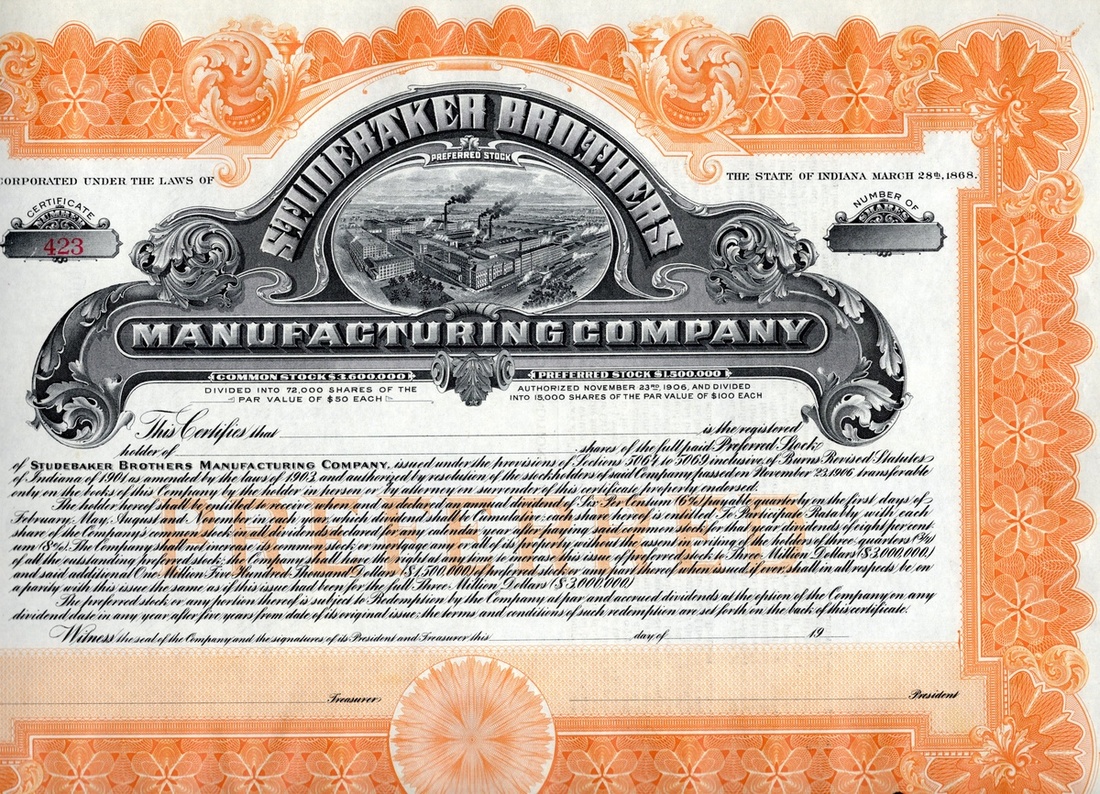 STUDEBAKER BROTHERS
PREFERRED STOCK
CORPORATED UNDER THE LAWS OF
THE STATE OF INDIANA MARCH 28th, 1868.
CERTIFICATE
NUMBER
423
NUMBER OF
SHARES
MANUFACTURING COMPANY
COMMON STOCK $3,600,000
PREFERRED STOCK $1,500,000
DIVIDED INTO 72,000 SHARES OF THE
PAR VALUE OF $50 EACH
AUTHORIZED NOVEMBER 23RD, 1906, AND DIVIDED
INTO 15,000 SHARES OF THE PAR VALUE OF $100 EACH
This Certifies that is the registered
holder of shares of the full paid Preferred Stock
of STUDEBAKER BROTHERS MANUFACTURING COMPANY, issued under the provisions of Sections 5062 to 5069 inclusive of Burns Revised Statutes
of Indiana of 1901 as amended by the laws of 1903, and authorized by resolution of the stockholders of said Company passed on November 23, 1906 transferable
only on the books of this Company by the holder in person or by attorney on surrender of this certificate properly endorsed.
The holder hereof shall be entitled to receive a fixed and as declared annual dividend of Six Per Cent (6%) payable quarterly on the first days of
February, May, August and November in each year, which dividend shall be cumulative, each share hereof is entitled To Participate Ratably with each
share of the Company's common stock in dividends declared in any year after preferred and common stock for that year dividends of eight per cent
um (8%). The Company shall not increase its common stock or mortgage any or all of its property without the assent in writing of the holders of three quarters (¾)
of all the outstanding preferred stock
and said additional One Million Five Hundred Thousand Dollars ($1,500,000) of preferred stock or any part thereof when issued, if ever, shall in all respects be on
a parity with this issue the same as if this issue had been for the full Three Million Dollars ($3,000,000)
The preferred stock or any portion thereof is subject to Redemption by the Company at par and accrued dividends at the option of the Company on any
dividend date in any year, after five years from date of its original issue, the terms and conditions of such redemption are set forth on the back of this certificate.
PREFERRED
Witness the seal of the Company and the signatures of its President and Treasurer this day of 19
Treasurer President